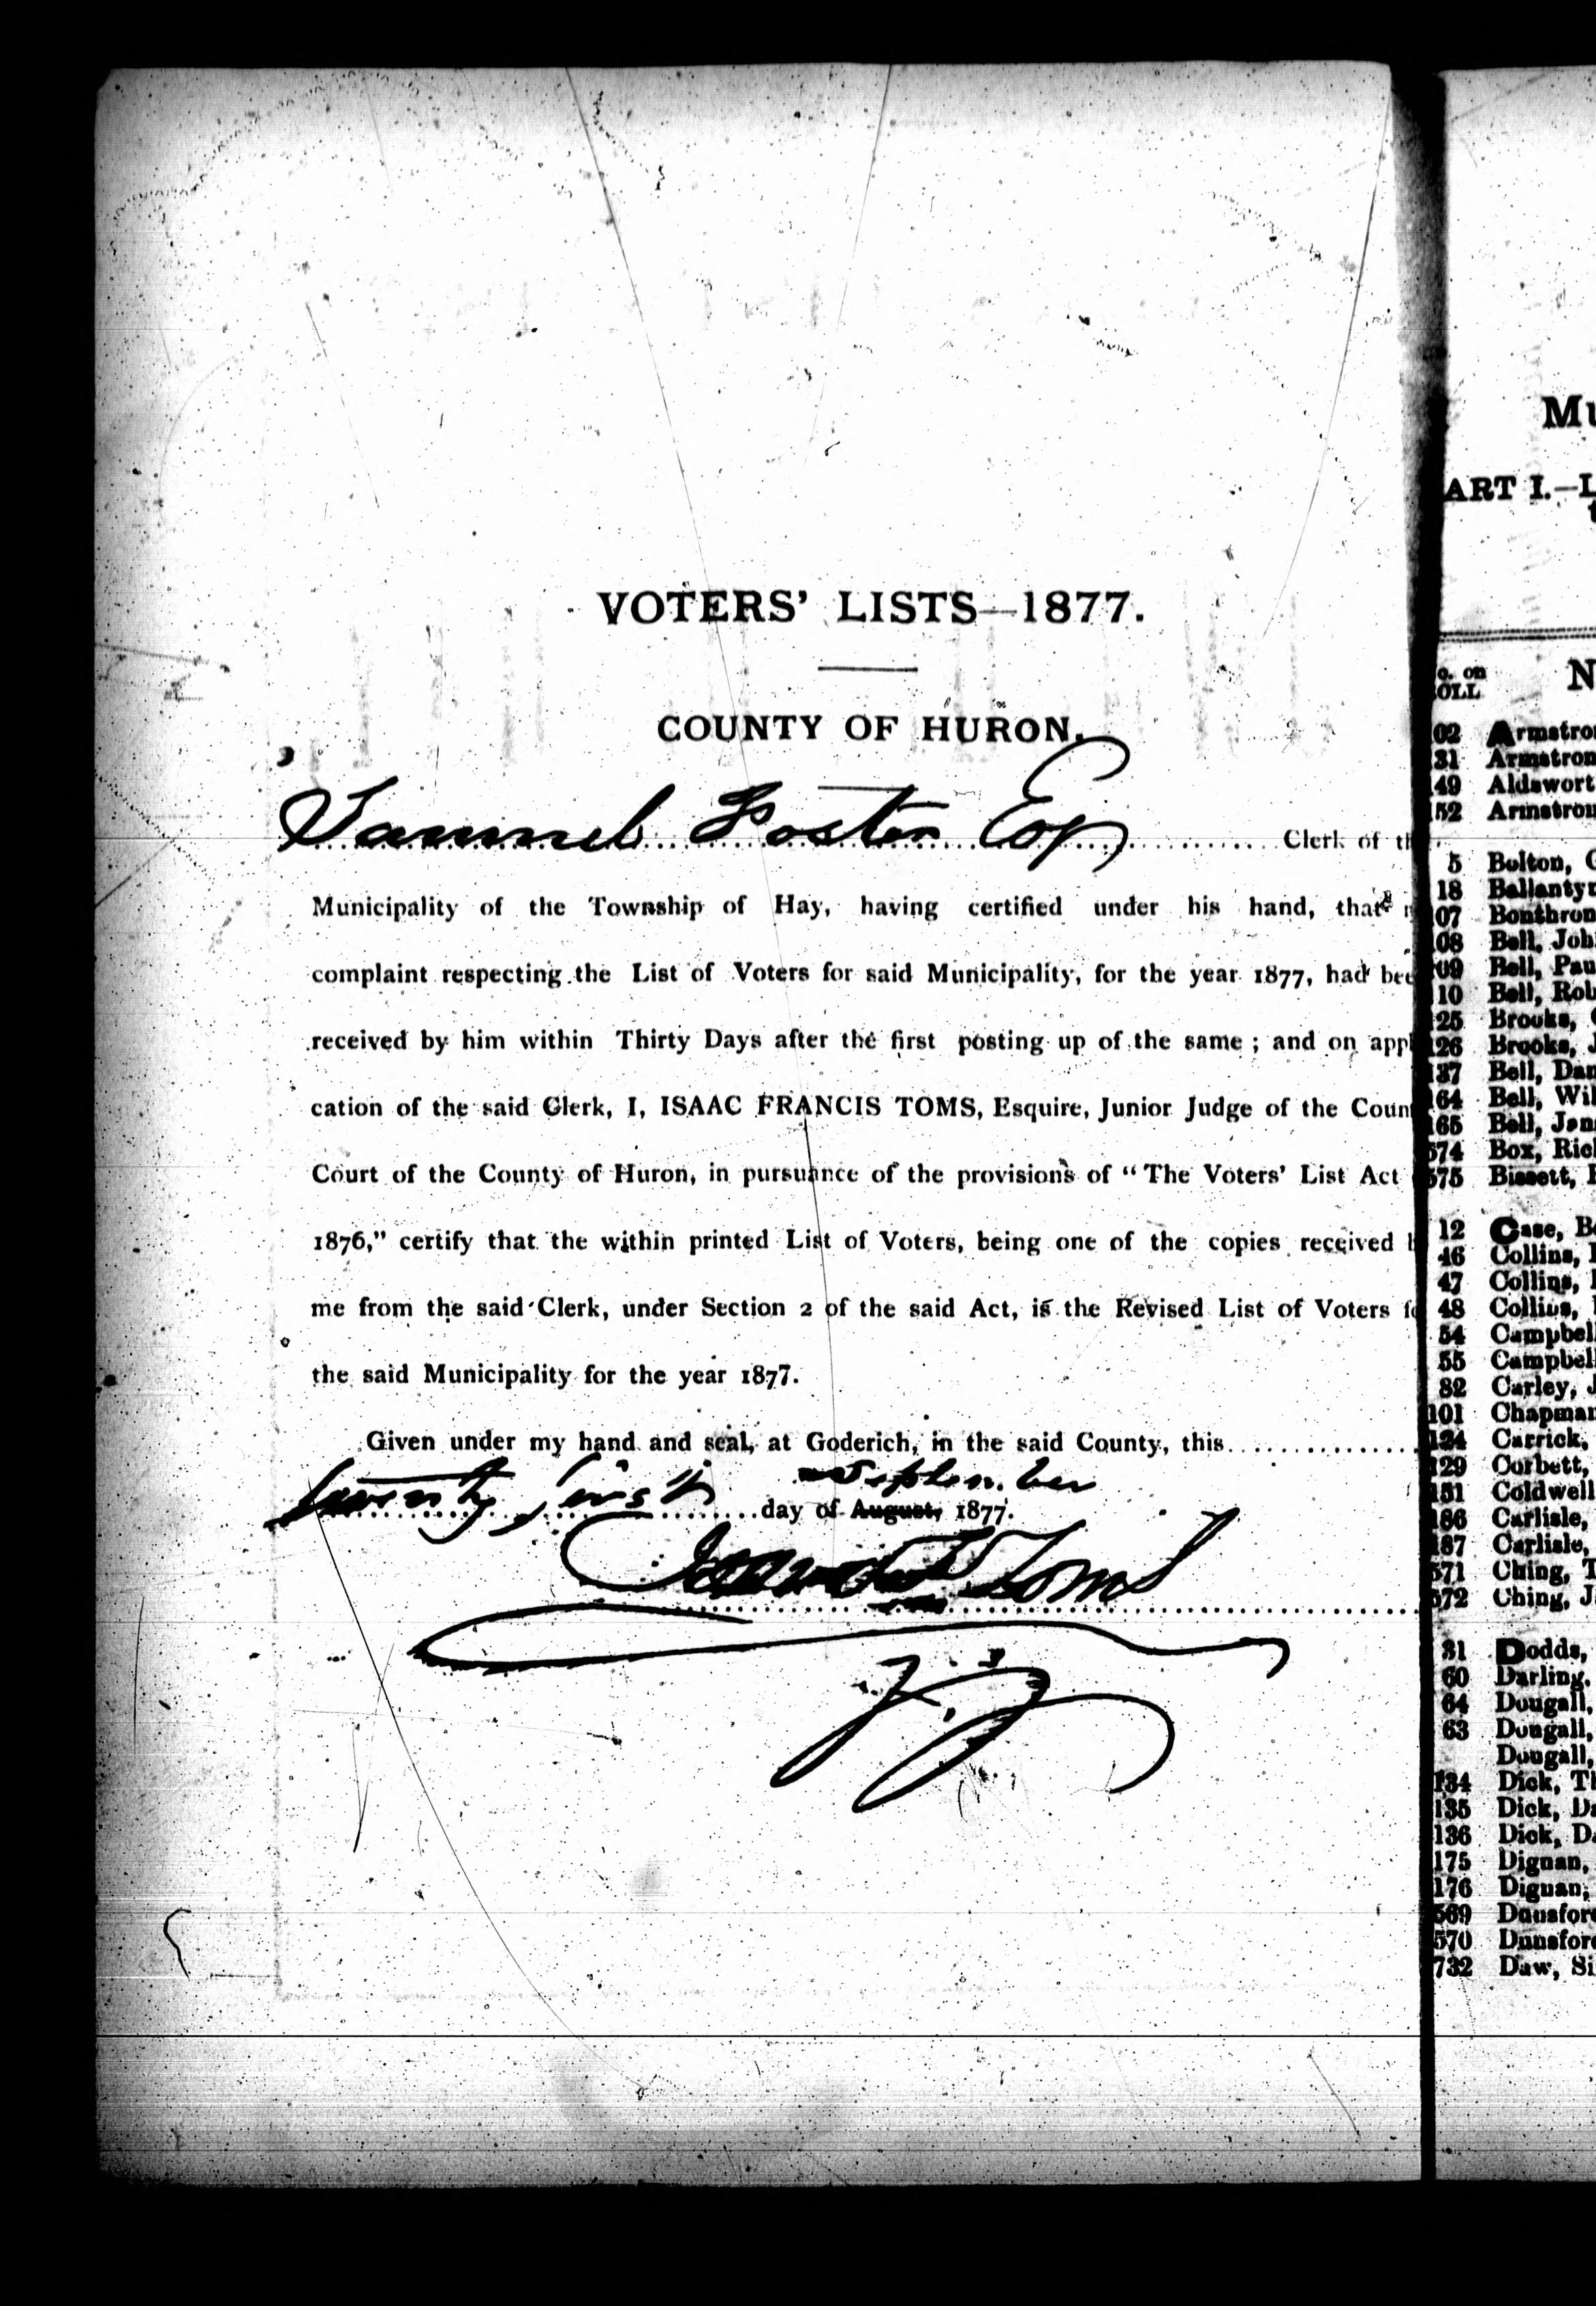 VOTERS' LISTS—1877.
COUNTY OF HURON.
Samuel Foster Esq Clerk of th
Municipality of the Township of Hay, having certified under his hand, that n
complaint respecting the List of Voters for said Municipality, for the year 1877, had bee
received by him within Thirty Days after the first posting up of the same ; and on appl
cation of the said Clerk, I, ISAAC FRANCIS TOMS, Esquire, Junior Judge of the Coun
Court of the County of Huron, in pursuance of the provisions of "The Voters' List Act
1876," certify that the within printed List of Voters, being one of the copies received b
me from the said Clerk, under Section 2 of the said Act, is the Revised List of Voters fo
the said Municipality for the year 1877.
Given under my hand and seal, at Goderich, in the said County, this
September
twenty first day of August, 1877.
Isaac F Toms
J. J
Mu
ART I.—L
o. on
OLL N
02 Armstron
31 Armstron
49 Aldswort
52 Armstron
5 Bolton, G
18 Ballantyn
107 Bonthron
108 Bell, Joh
109 Bell, Pau
110 Bell, Rob
125 Brooks, G
126 Brooks, J
137 Bell, Dan
164 Bell, Wil
165 Bell, Jan
574 Box, Rich
575 Bissett,
12 Case, Be
46 Collins,
47 Collins,
48 Collins,
54 Campbell
55 Campbell
82 Carley, J
101 Chapman
124 Carrick,
129 Corbett,
151 Coldwell
186 Carlisle,
187 Carlisle,
571 Ching, T
572 Ching, J
31 Dodds,
60 Darling,
64 Dougall,
63 Dougall,
Dougall,
134 Dick, Th
135 Dick, Da
136 Dick, Da
175 Dignan,
176 Dignan,
569 Dunsford
570 Dunsford
732 Daw, Si